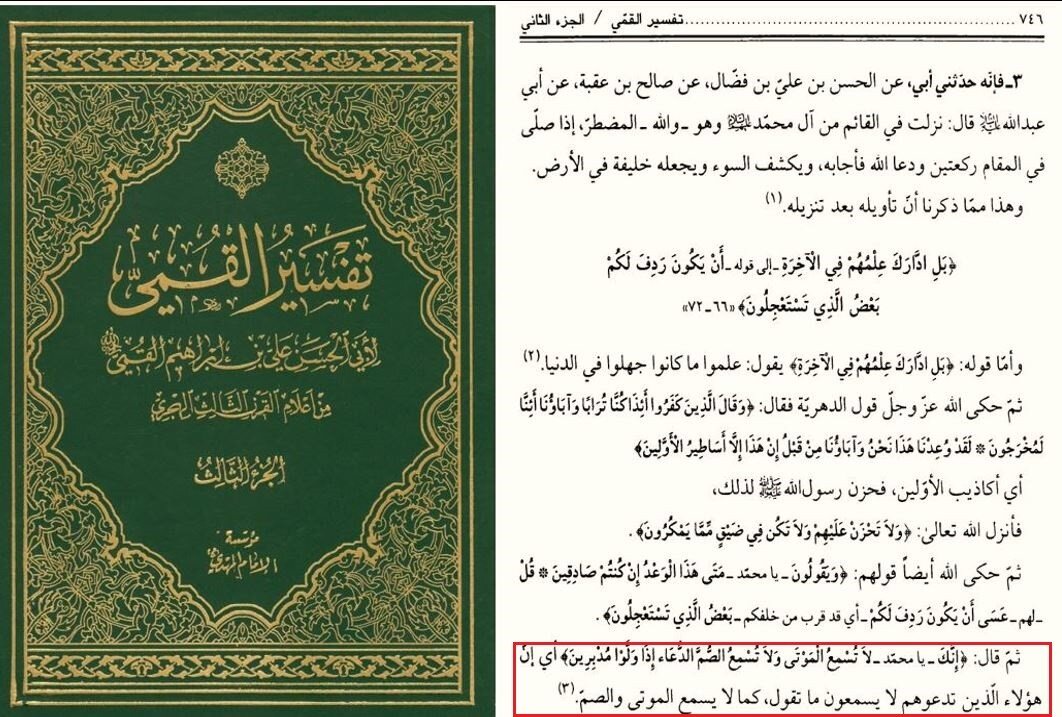 تفسير القمي
لأبي الحسن علي بن إبراهيم القمي
من أعلام القرن الثالث الهجري
الجزء الثالث
مؤسسة
الإمام المهدي
٧٤٦ ........ تفسير القمّي / الجزء الثاني
٣ـ فإنّه حدّثني أبي، عن الحسن بن عليّ بن فضّال، عن صالح بن عقبة، عن أبي
عبدالله عليه السلام قال: نزلت في القائم من آل محمّد عليهم السلام وهو ـ والله ـ المضطرّ، إذا صلّى
في المقام ركعتين ودعا الله فأجابه، ويكشف السوء ويجعله خليفة في الأرض.
وهذا ممّا ذكرنا أنّ تأويله بعد تنزيله.(١)
﴿بَلِ ادَّارَكَ عِلْمُهُمْ فِي الْآخِرَةِ ـ إلى قوله ـ أَنْ يَكُونَ رَدِفَ لَكُمْ
بَعْضُ الَّذِي تَسْتَعْجِلُونَ﴾ «٦٦ـ٧٢»
وأمّا قوله: ﴿بَلِ ادَّارَكَ عِلْمُهُمْ فِي الْآخِرَةِ﴾ يقول: علموا ما كانوا جهلوا في الدنيا.(٢)
ثمّ حكى الله عزّ وجلّ قول الدهريّة فقال: ﴿وَقَالَ الَّذِينَ كَفَرُوا أَئِذَا كُنَّا تُرَابًا وَآبَاؤُنَا أَئِنَّا
لَمُخْرَجُونَ * لَقَدْ وُعِدْنَا هَذَا نَحْنُ وَآبَاؤُنَا مِنْ قَبْلُ إِنْ هَذَا إِلَّا أَسَاطِيرُ الْأَوَّلِينَ﴾
أي أكاذيب الأوّلين، فحزن رسول الله صلى الله عليه وآله لذلك،
فأنزل الله تعالىٰ: ﴿وَلاَ تَحْزَنْ عَلَيْهِمْ وَلاَ تَكُن فِي ضَيْقٍ مِّمَّا يَمْكُرُونَ﴾.
ثمّ حكى الله أيضاً قولهم: ﴿وَيَقُولُونَ ـ يا محمّد ـ مَتَى هَذَا الْوَعْدُ إِنْ كُنتُمْ صَادِقِينَ * قُلْ
ـ لهم ـ عَسَى أَنْ يَكُونَ رَدِفَ لَكُمْ ـ أي قد قرب من خلفكم ـ بَعْضُ الَّذِي تَسْتَعْجِلُونَ﴾.
ثمّ قال: ﴿إِنَّكَ ـ يا محمّد ـ لاَ تُسْمِعُ الْمَوْتَى وَلاَ تُسْمِعُ الصُّمَّ الدُّعَاء إِذَا وَلَّوْا مُدْبِرِينَ﴾ أي إنّ
هؤلاء الّذين تدعوهم لا يسمعون ما تقول، كما لا يسمع الموتى والصمّ.(٣)